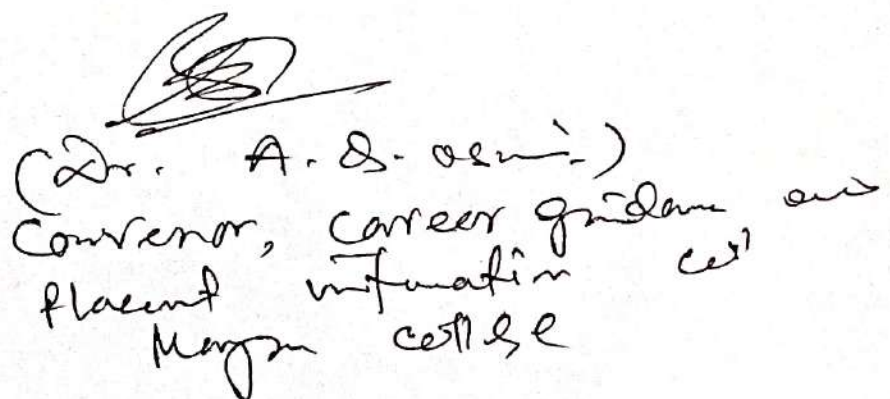 (Dr. A. S.
Convenor, career guidance and
Placement information cell
college